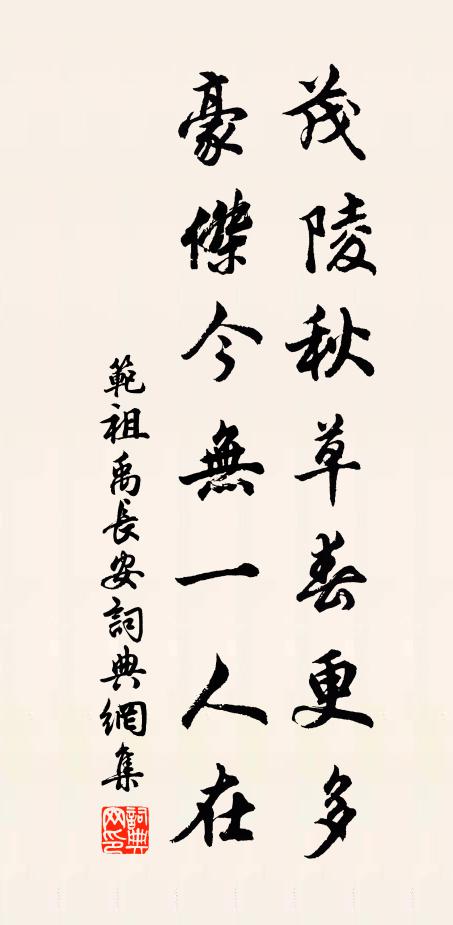 茂陵秋草春更多
豪傑今無一人在
範祖禹長安詞典網集
詞典网印